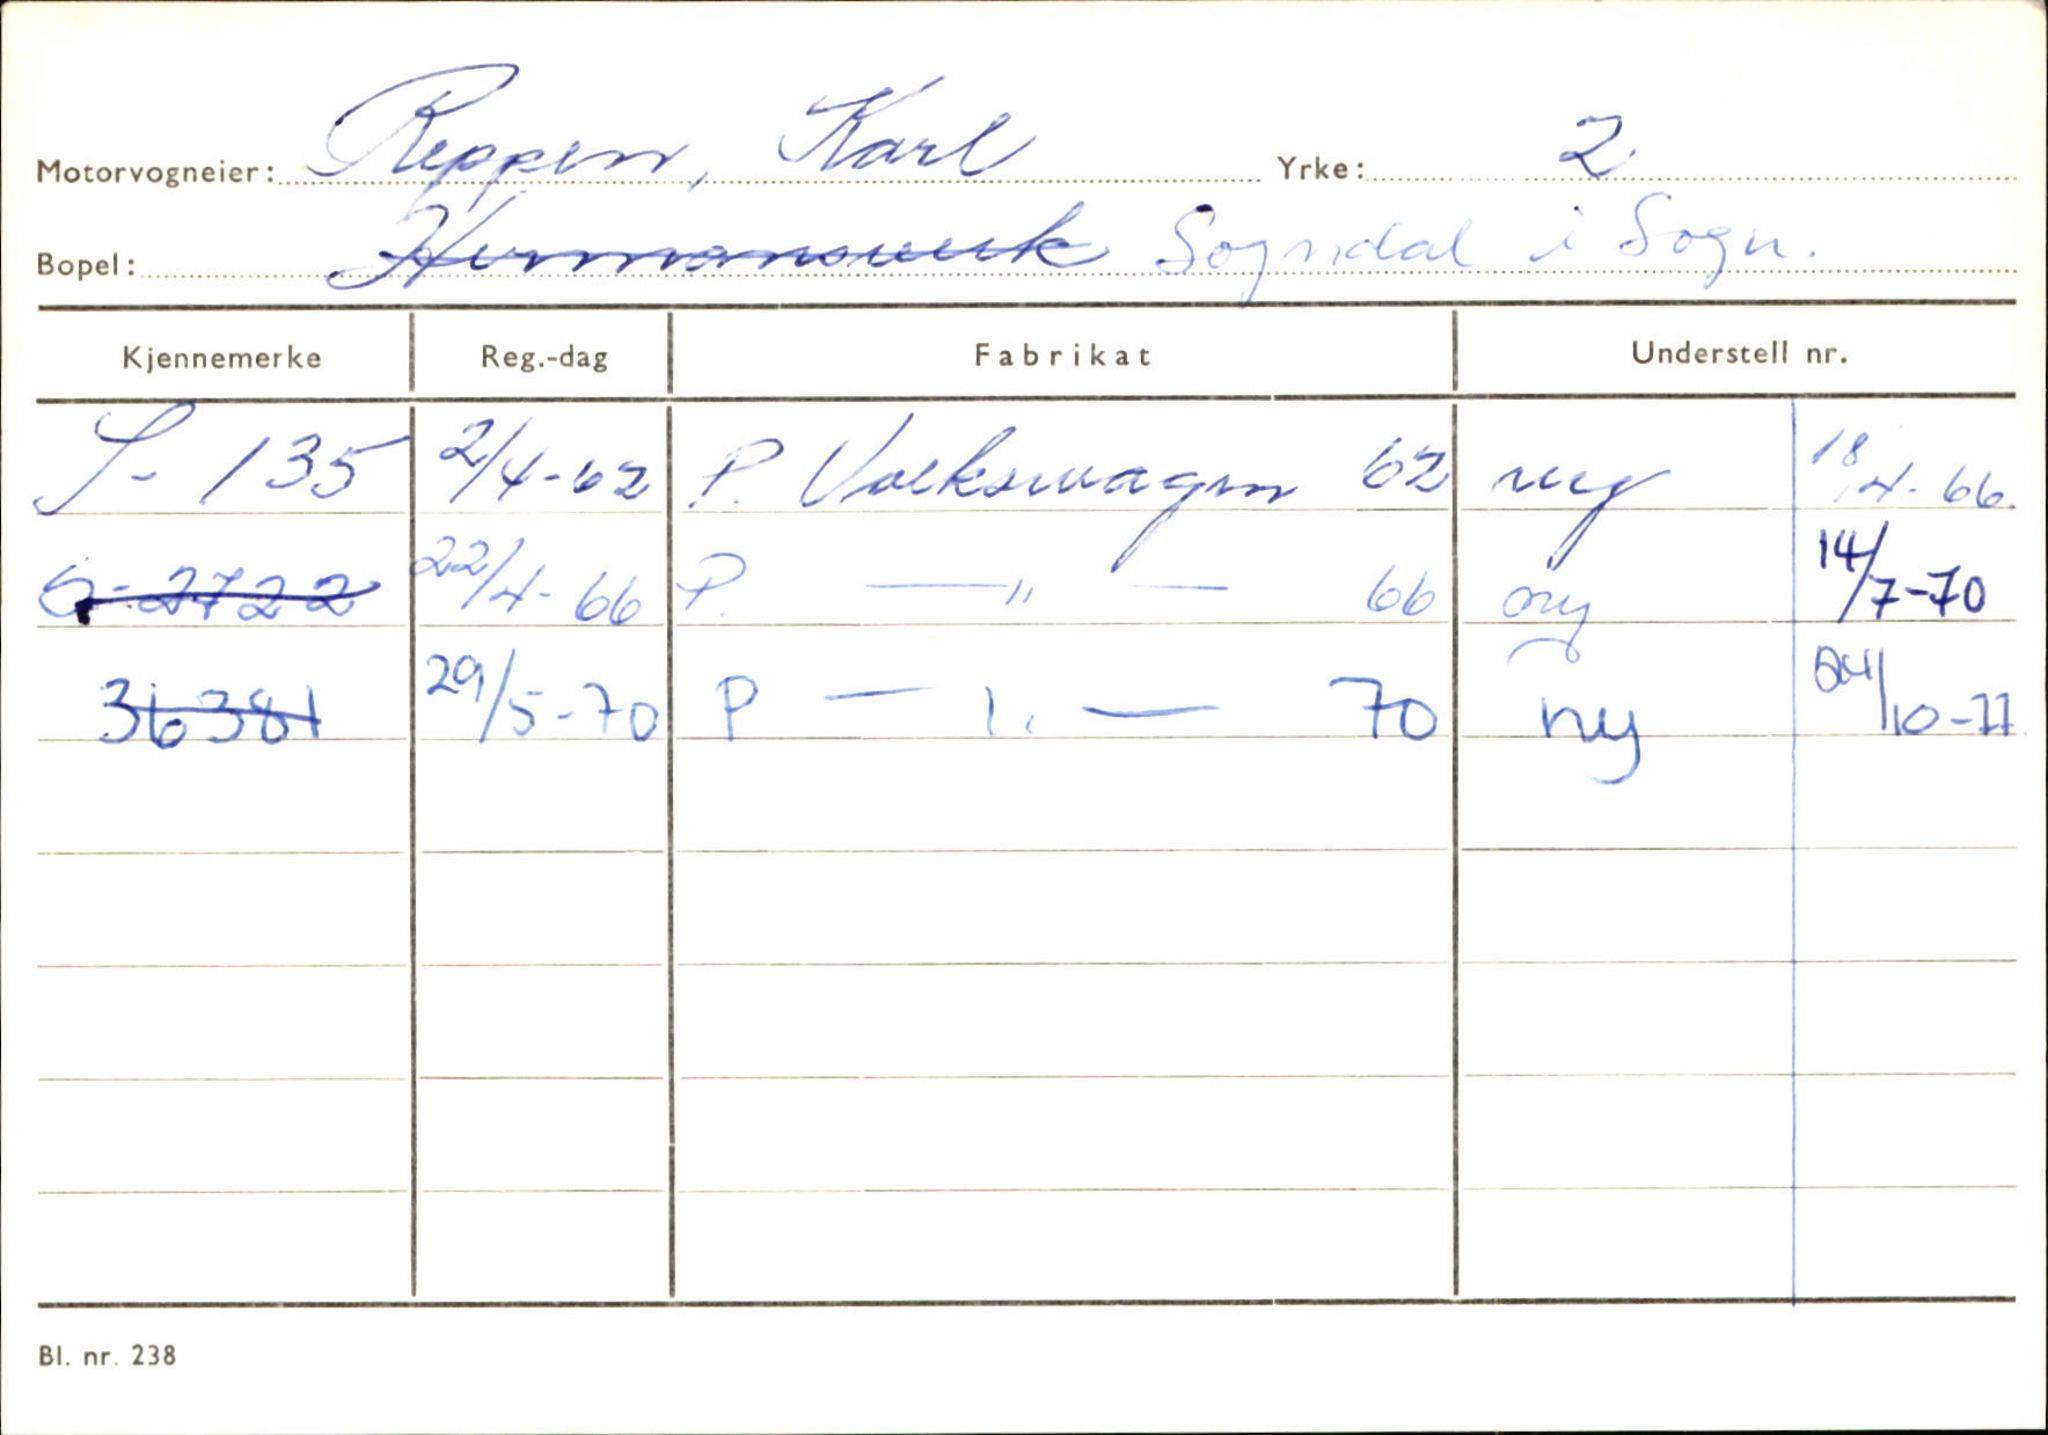 Motorvogneier: Reppen, Karl Yrke: 2
Bopel: Hermansverk Sogndal i Sogn.
Kjennemerke Reg.-dag Fabrikat Understell nr.
S- 135 2/4-62 P. Volkswagen 62 ny 18/4-66.
2722 22/4-66 P. —„— 66 ny 14/7-70
36381 29/5-70 P —„— 70 ny 24/10-77
Bl. nr. 238